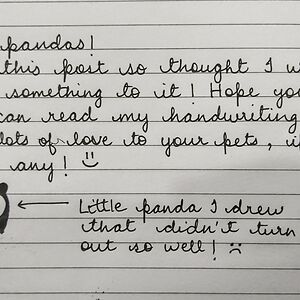 pandas!
this post so thought I w
something to it! Hope you
can read my handwriting
lots of love to your pets, i
any! :)
Little panda I drew
that didn't turn
out so well! :(